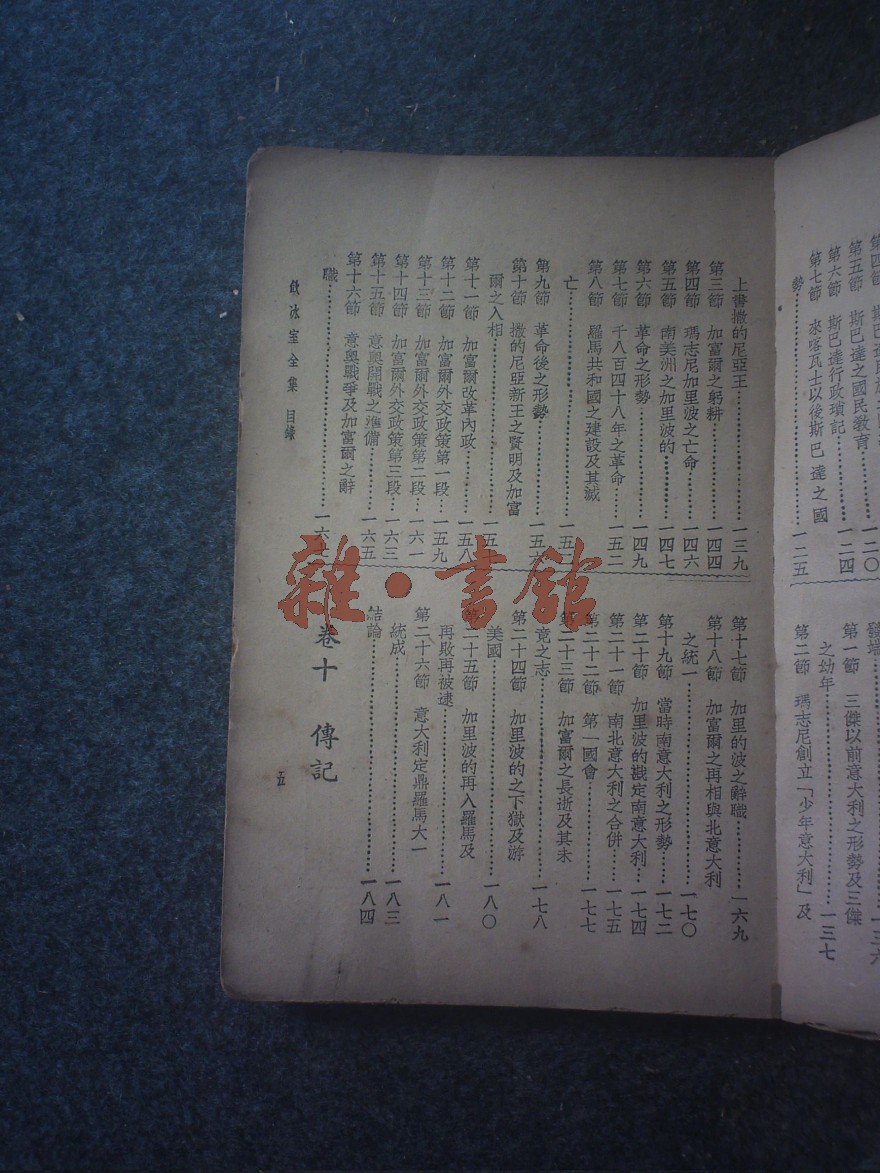 斯巴達之國民教育……………一二〇
第六節 斯巴達行政瑣記………一二四
第七節 來喀瓦士以後斯巴達之國
勢……………………一二五
發端……………………一三六
第一節 三傑以前意大利之形勢及三傑
之幼年……………………一三七
第二節 瑪志尼創立「少年意大利」及
上書撒的尼亞王……………一三九
第三節 加富爾之躬耕…………一四四
第四節 瑪志尼加里波之亡命……一四六
第五節 南美洲之加里波的………一四七
第六節 革命之形勢……………一四九
第七節 千八百四十八年之革命…一五二
第八節 羅馬共和國之建設及其滅
亡……………………一五
第九節 革命後之形勢…………一五六
第十節 撒的尼亞新王之賢明及加富
爾之入相……………………一五
第十一節 加富爾改革內政………一五八
第十二節 加富爾外交政策第一段…一五九
第十三節 加富爾外交政策第二段…一六一
第十四節 加富爾外交政策第三段…一六三
第十五節 意奧開戰之準備………一六五
第十六節 意奧戰爭及加富爾之辭
職……………………一六
第十七節 加里的波之辭職………一六九
第十八節 加富爾之再相與北意大利
之統一……………………一七〇
第十九節 當時南意大利之形勢…一七二
第二十節 加里波的戡定南意大利…一七四
第二十一節 南北意大利之合併…一七五
第二十二節 第一國會…………一七七
第二十三節 加富爾之長逝及其未
竟之志……………………一七八
第二十四節 加里波的之下獄及游
美國……………………一八〇
第二十五節 加里波的再入羅馬及
再敗再被逮……………………一八一
第二十六節 意大利定鼎羅馬大一
統成……………………一八三
結論……………………一八四
飲冰室全集 目錄
卷十 傳記
五
雜·書館